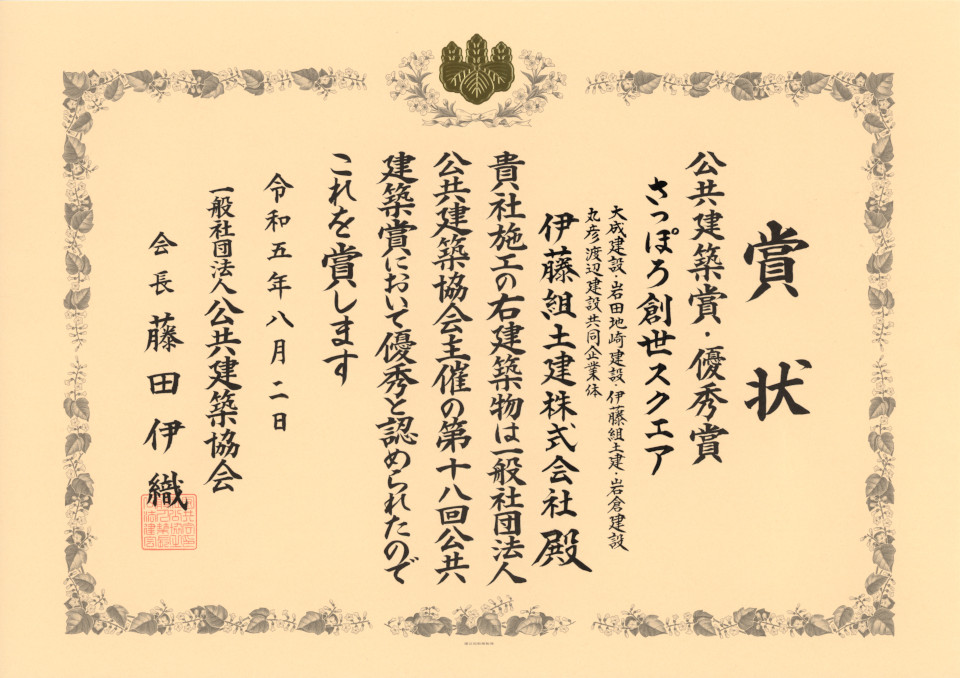 賞状
公共建築賞・優秀賞
さっぽろ創世スクエア
大成建設・岩田地崎建設・伊藤組土建・岩倉建設
丸彦渡辺建設共同企業体
伊藤組土建株式会社 殿
貴社施工の右建築物は一般社団法人
公共建築協会主催の第十八回公共
建築賞において優秀と認められたので
これを賞します
令和五年八月二日
一般社団法人公共建築協会
会長 藤田伊織